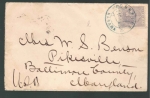 Mrs W. S. Benson
Pikesville
Baltimore County
USA Maryland.